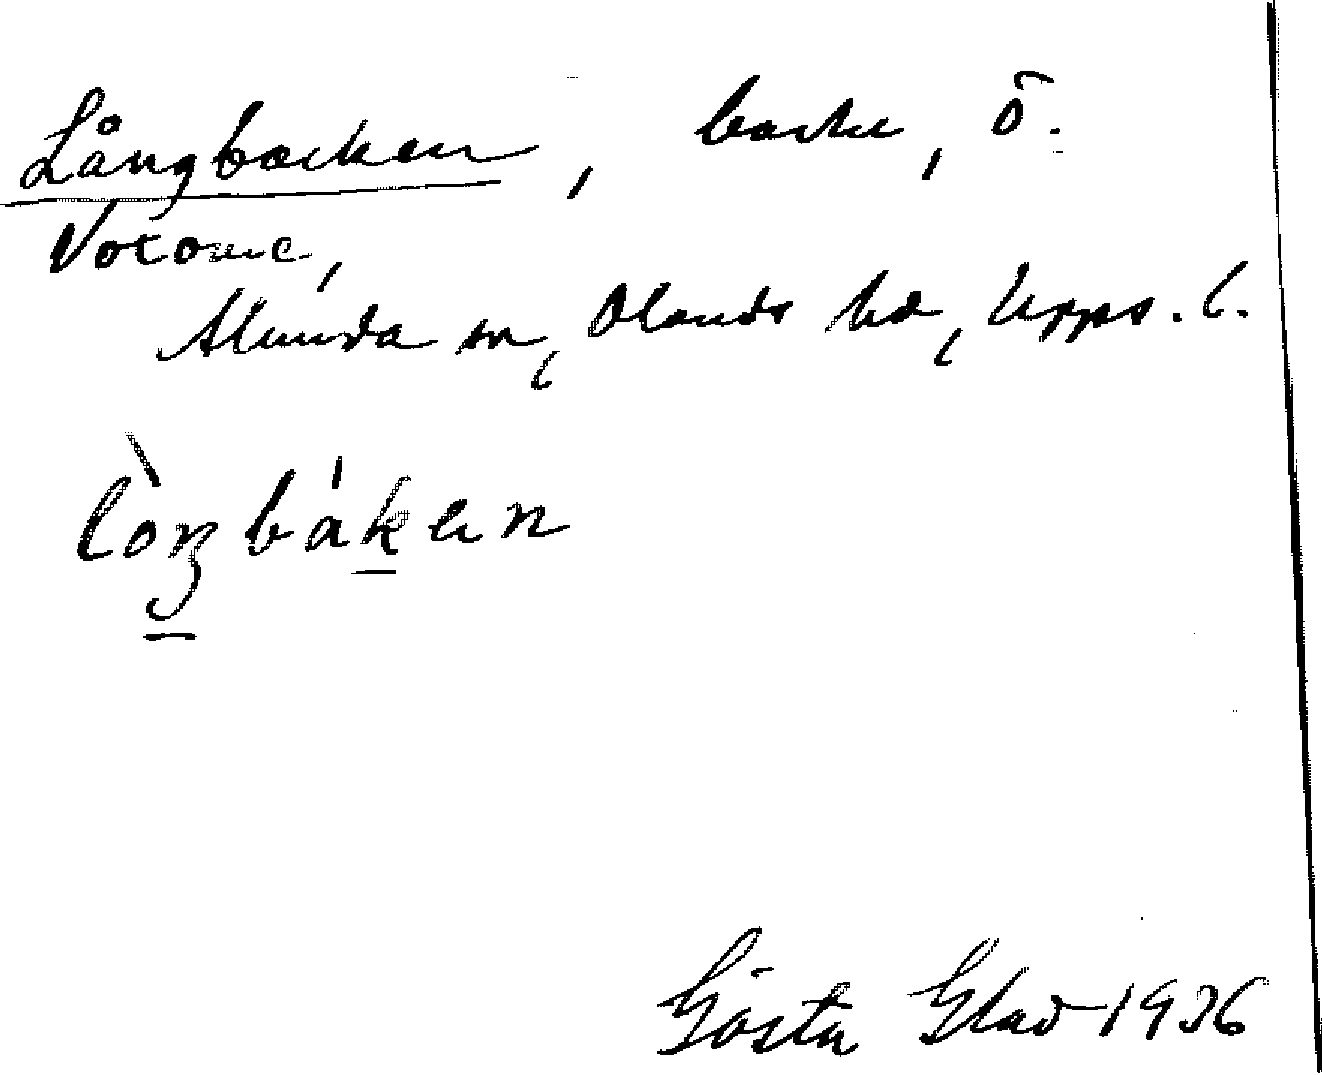 Långbacken, backe, ö.
Voxome,
Alunda sn, Olands hd, Upps. l.
lòŋbákan
Gösta Glad 1936